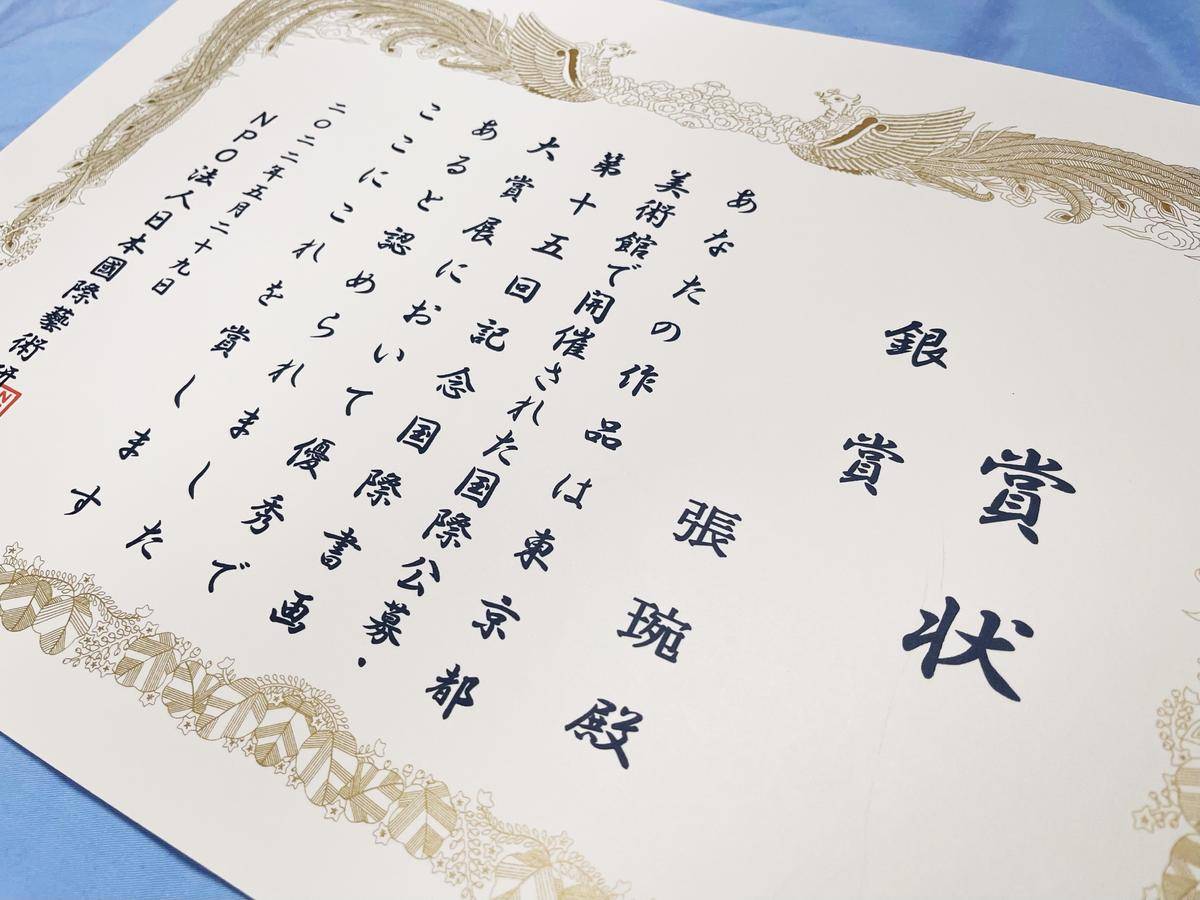 賞状
銀賞
張琬殿
あなたの作品は東京都
美術館で開催された国際公募・
第十五回記念国際書画
大賞展において優秀で
あると認められました
ここにこれを賞します
二〇二二年五月二十九日
NPO法人日本國際藝術研